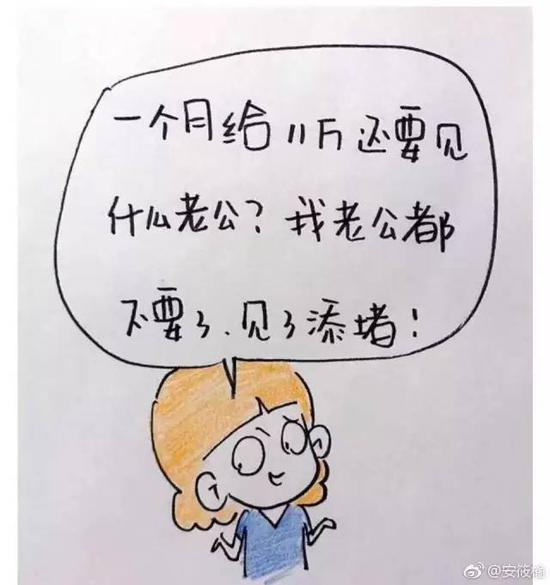 一个月给11万还要见
什么老公？我老公都
不要了、见了添堵！
@安筱楠